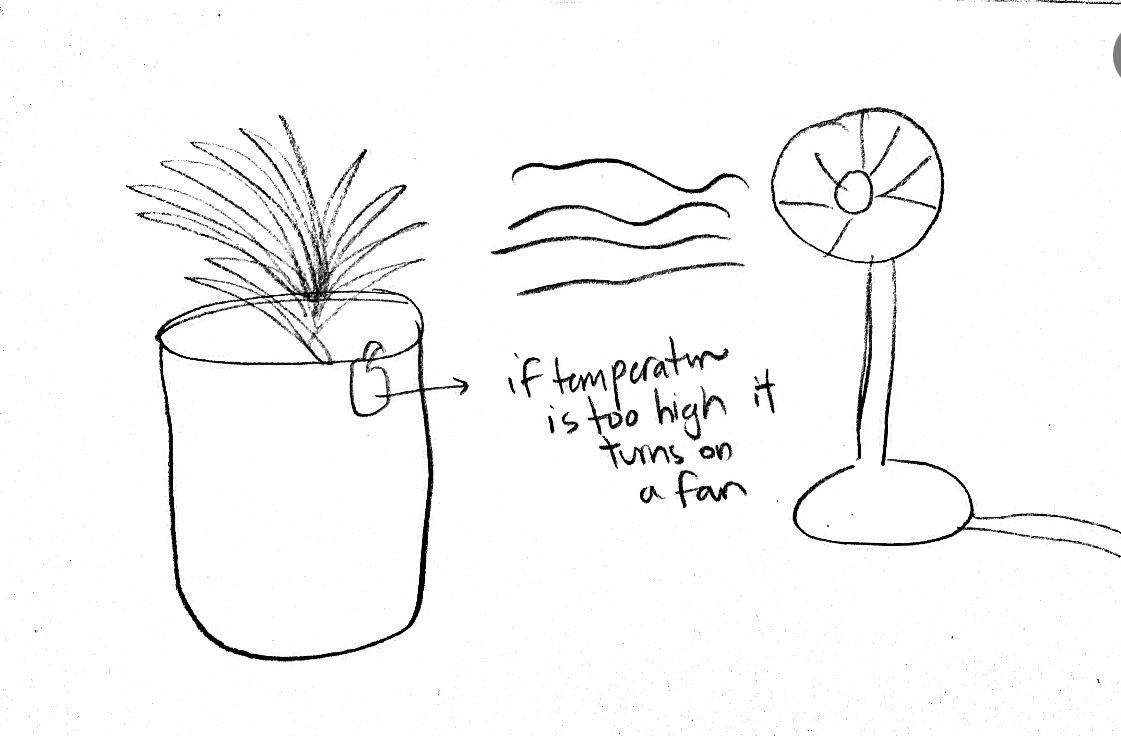 if temperature
is too high it
turns on
a fan